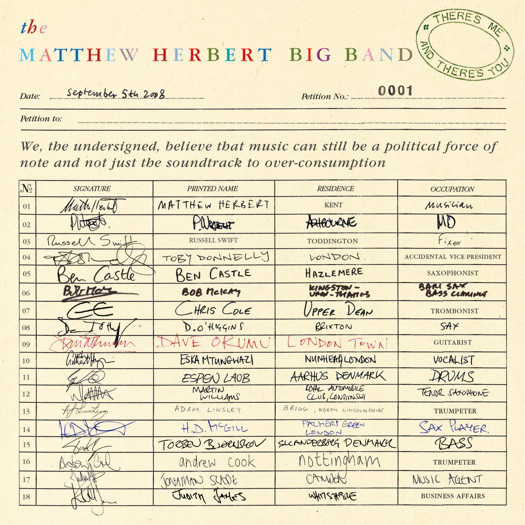 the
MATTHEW HERBERT BIG BAND
THERE'S ME
AND THERE'S YOU
Date: September 5th 2008 Petition No.: 0001
Petition to:
We, the undersigned, believe that music can still be a political force of
note and not just the soundtrack to over-consumption
No SIGNATURE PRINTED NAME RESIDENCE OCCUPATION
01 MATTHEW HERBERT KENT Musician
02 P.Wright ASHBOURNE MD
03 Russell Swift RUSSELL SWIFT TODDINGTON Fixer
04 TOBY DONNELLY LONDON. ACCIDENTAL VICE PRESIDENT
05 Ben Castle BEN CASTLE HAZLEMERE SAXOPHONIST
06 BOB McKAY KINGSTON-UPON-THAMES BARI SAX BASS CLARINET
07 CHRIS COLE UPPER DEAN TROMBONIST
08 D.O'HIGGINS BRIXTON SAX
09 DAVE OKUMU LONDON TOWN GUITARIST
10 ESKA MTUNGWAZI NUNHEAD, LONDON VOCALIST
11 ESPEN LAUB AARHUS DENMARK DRUMS
12 MARTIN WILLIAMS AUTOMOBILE CLUB, TENOR SAXOPHONE
13 ADAM LINSLEY BRIGG, NORTH LINCOLNSHIRE TRUMPETER
14 H.D. McGILL PALMERS GREEN LONDON SAX PLAYER
15 TORBEN SKANDERBORG DENMARK BASS
16 andrew cook nottingham TRUMPETER
17 JONATHAN SLADE CAMDEN MUSIC AGENT
18 JUDITH WHITSTABLE BUSINESS AFFAIRS